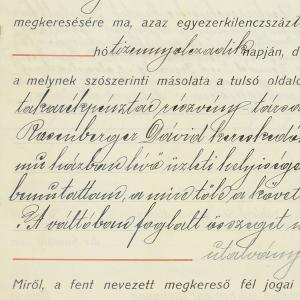 megkeresésére ma, azaz egyezerkilenczszáz
hó tizennyolczadik napján, d
a melynek szószerinti másolata a tulsó oldalo
takarékpénztár részvény-társa
Rosenberger Dávid kereskedő
mu házban lévő üzleti helyiség
bemutattam, a mire tőle a követ
"A váltóban foglalt összeget
utalvány
Miről, a fent nevezett megkereső fél jogai